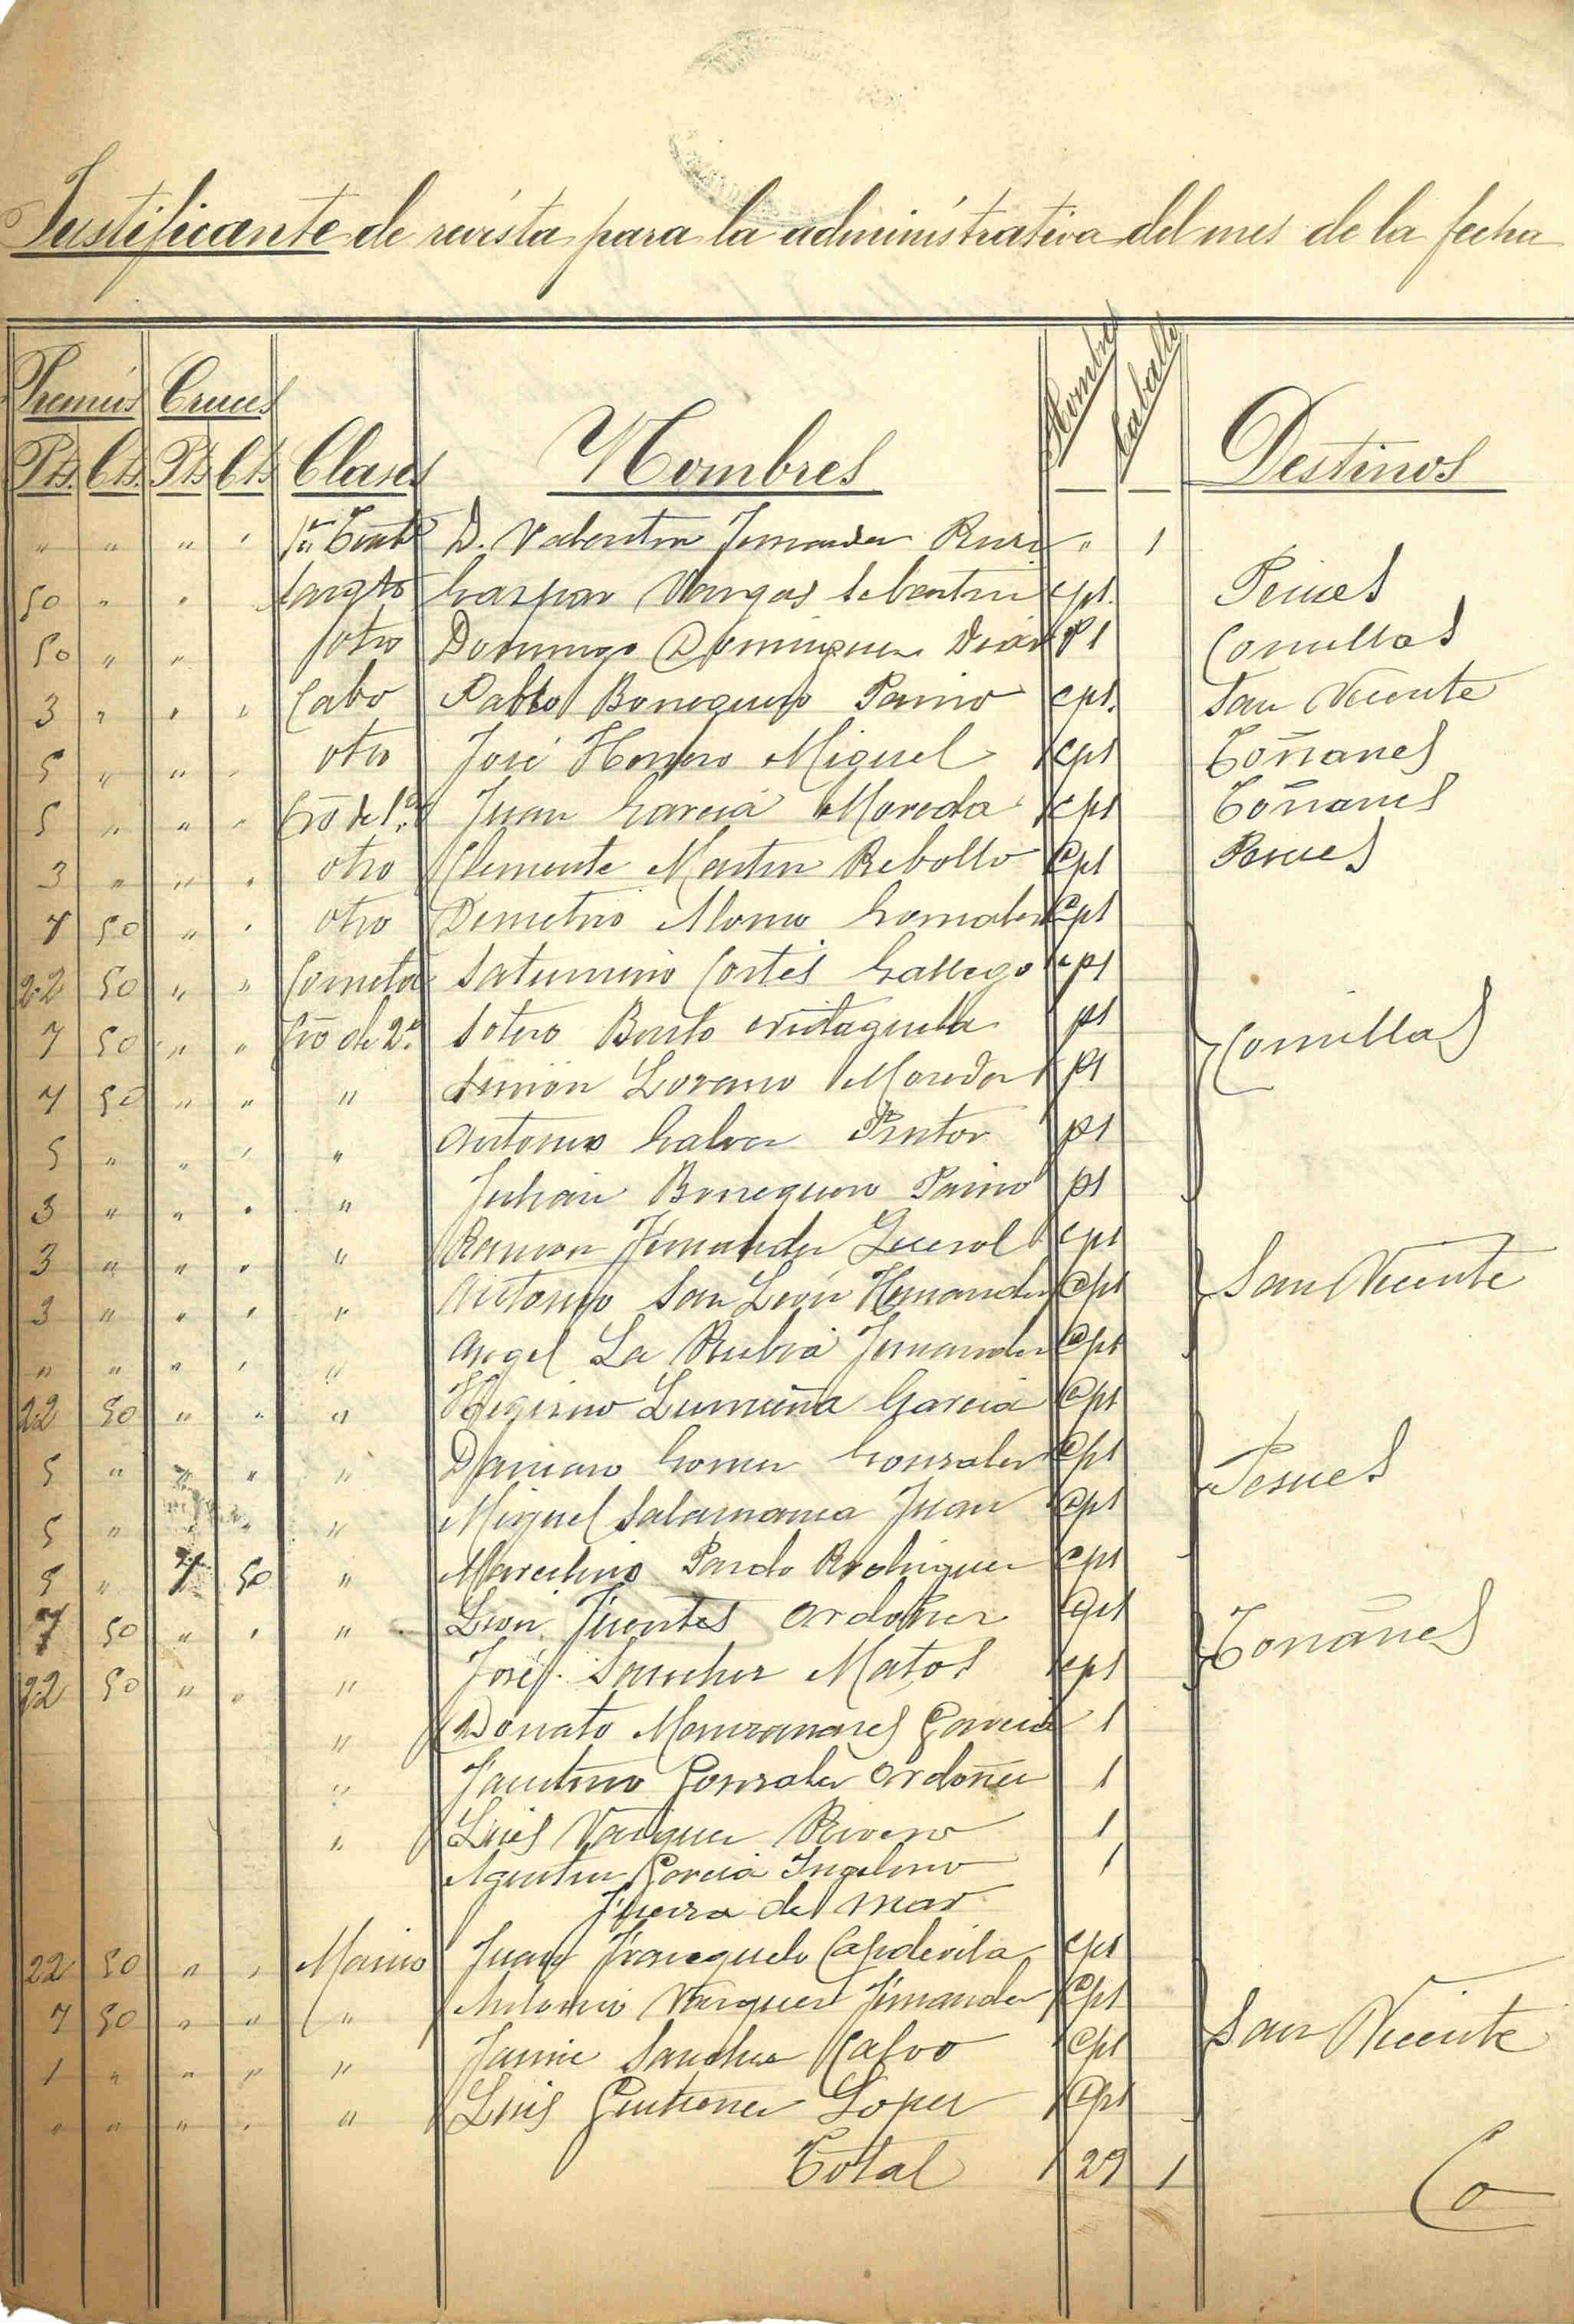 Justificante de revista para la administrativa del mes de la fecha
Premios Cruces Clases Nombres Hombres Caballos Destinos
Pts. Cts. Pts Cts
" " " " 1er Tente D. Valentin Fernandez " 1
50 " " Sargto Gaspar Vargas cps. Pesues
50 " " otro Domingo Dominguez Diaz Ps Comillas
3 " " " Cabo Pablo Bonequero Paino cps. San Vicente
5 " " " otro José Herrero Miguel cps Toñanes
5 " " " Gño de 1ª Juan Garcia Moreda cps Toñanes
3 " " " otro Clemente Martin Rebollo Cps Pesues
7 50 " " otro Demetrio Alonso Gonzalez Cps
22 50 " " Corneta Saturnino Cortés Gallego cps
7 50 " " Gño de 2ª Sotero ps Comillas
7 50 " " " Simón Lozano Moreda ps
5 " " " " Antonio Galvez Pintor ps
3 " " " " Julian Bonequero Paino ps
3 " " " " Ramon Fernandez cps
3 " " " " Antonio San León Hernandez Cps San Vicente
" " " " " Angel La Rubia Fernandez Cps
22 50 " " " Higinio Garcia Cps
5 " " " " Damian Gomez Gonzalez Cps Pesues
5 " " " " Miguel Salamanca Juan Cps
5 " 7 50 " Marcelino Pardo Rodriguez Cps
7 50 " " " León Fuentes Ordoñez Cps Toñanes
22 50 " " " José Sanchez Matos cps
" Donato Manzanares Garcia 1
" Faustino Gonzalez Ordoñez 1
" Luis Vazquez Rivero 1
Agustin Garcia 1
Fuerza de mar
22 50 " " Marino Juan Franquelo Capdevila cps
7 50 " " " Antonio Vazquez Fernandez Cps
1 " " " " Jaime Sanchez Calvo Cps San Vicente
" " " " " Luis Gutierrez Lopez Cps
Total 29 1
Co